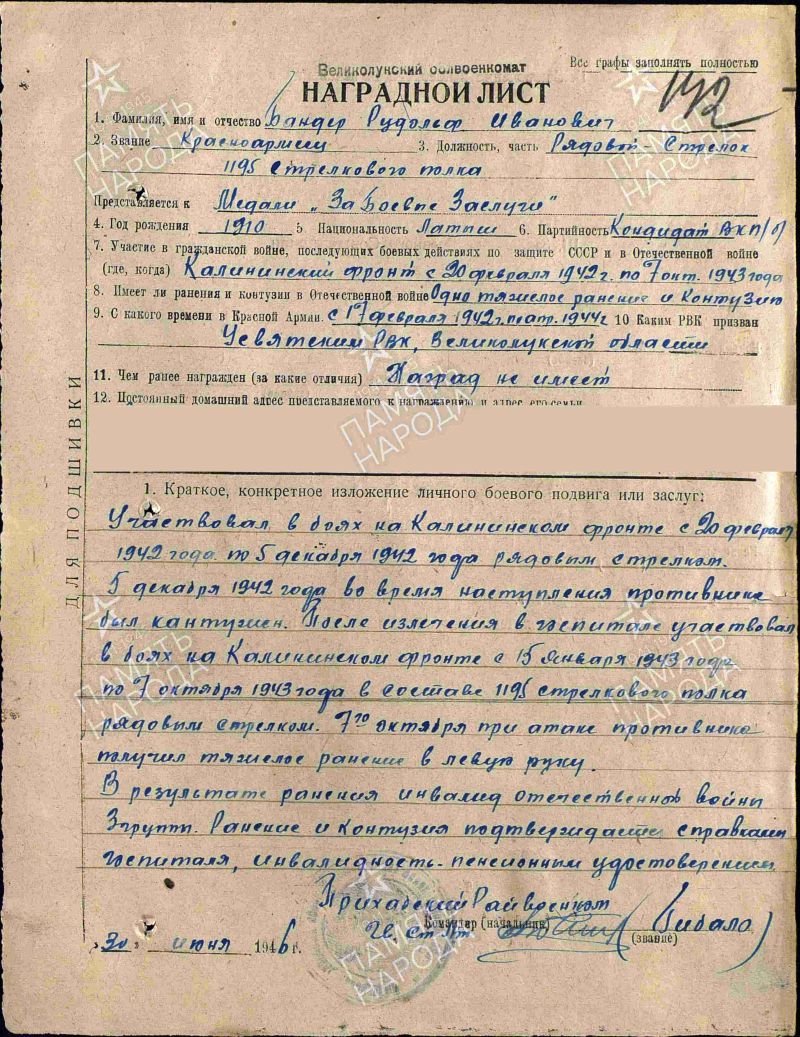 Великолукский облвоенкомат
Все графы заполнять полностью
142
НАГРАДНОЙ ЛИСТ
1. Фамилия, имя и отчество Бандер Рудольф Иванович
2. Звание Красноармеец 3. Должность, часть Рядовой - Стрелок
1195 стрелкового полка
Представляется к Медали „За Боевые Заслуги"
4. Год рождения 1910 5. Национальность Латыш 6. Партийность Кондидат ВКП/б/
7. Участие в гражданской войне, последующих боевых действиях по защите СССР и в Отечественной войне
(где, когда) Калининский фронт с 20 февраля 1942 г. по 7 окт. 1943 года
8. Имеет ли ранения и контузии в Отечественной войне Одно тяжелое ранение и Контузию
9. С какого времени в Красной Армии. с 17 февраля 1942 г. по апр. 1944 г 10 Каким РВК призван
Усвятским РВК, Великолукской области
11. Чем ранее награжден (за какие отличия) Наград не имеет
12. Постоянный домашний адрес представляемого к награждению и адрес его семьи
ДЛЯ ПОДШИВКИ
1. Краткое, конкретное изложение личного боевого подвига или заслуг:
Участвовал в боях на Калининском фронте с 20 февраля
1942 года по 5 декабря 1942 года рядовым стрелком.
5 декабря 1942 года во время наступления противника
был кантужен. После излечения в госпитале участвовал
в боях на Калининском фронте с 15 января 1943 года
по 7 октября 1943 года в составе 1195 стрелкового полка
рядовым стрелком. 7го октября при атаке противника
получил тяжелое ранение в левую руку.
В результате ранения инвалид отечественной войны
3 групп. Ранение и Контузия подтверждается справками
госпиталя, инвалидность - пенсионным удостоверением
Прихабский Райвоенком
Командир (начальник)
Гв. Ст. Л-т (Цибало)
(звание)
„30" июня 1946 г.
ПАМЯТЬ НАРОДА